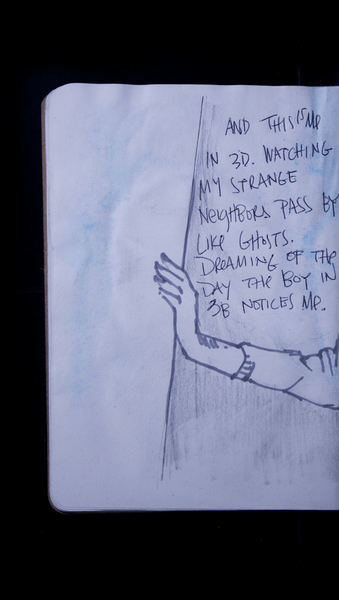 AND THIS IS ME
IN 3D. WATCHING
MY STRANGE
NEIGHBORS PASS BY
LIKE GHOSTS.
DREAMING OF THE
DAY THE BOY IN
3B NOTICES ME.